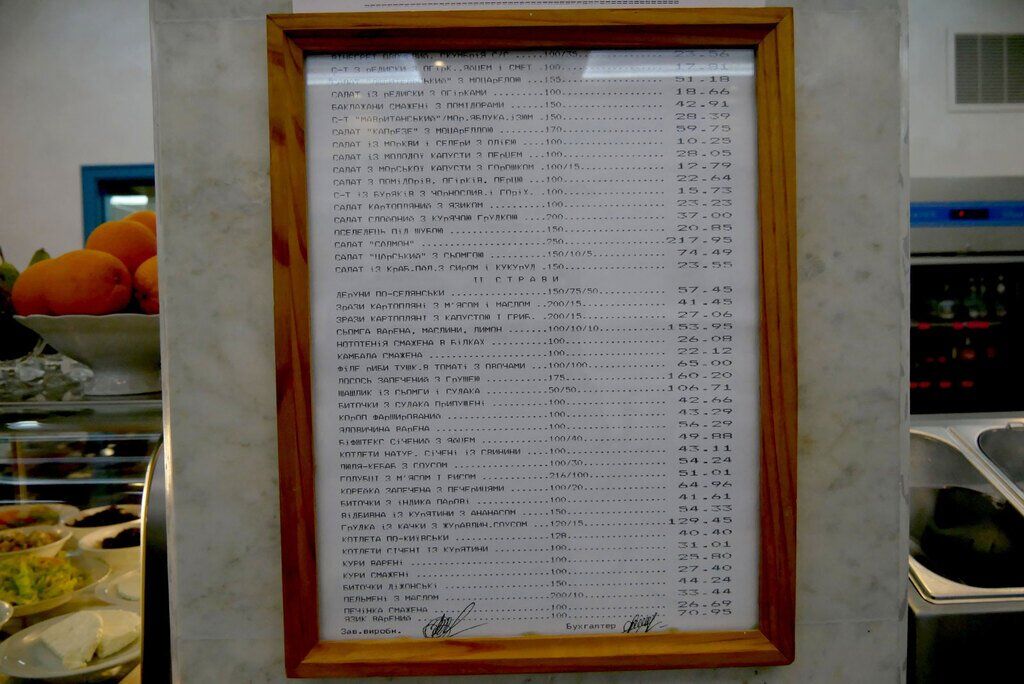 С-Т З РЕДИСКИ З ОГІРК.,ЯЙЦЕМ І СМЕТ .100................17.81
З МОЦАРЕЛОЮ ...155................51.18
САЛАТ ІЗ РЕДИСКИ З ОГІРКАМИ ..........100................18.66
БАКЛАЖАНИ СМАЖЕНІ З ПОМІДОРАМИ ......150................42.91
С-Т "МАВРИТАНСЬКИЙ"/МОР.ЯБЛУКА.ІЗЮМ .150................28.39
САЛАТ "КАПРЕЗЕ" З МОЦАРЕЛЛОЮ ........170................59.75
САЛАТ ІЗ МОРКВИ І СЕЛЕРИ З ОЛІЄЮ ....100................10.25
САЛАТ ІЗ МОЛОДОЇ КАПУСТИ З ПЕРЦЕМ ...100................28.05
САЛАТ З МОРСЬКОЇ КАПУСТИ З ГОРОШКОМ .100/15................12.79
САЛАТ З ПОМІДОРІВ, ОГІРКІВ, ПЕРЦЮ ...100................22.64
С-Т ІЗ БУРЯКІВ З ЧОРНОСЛИВ.І ГОРІХ. .100................15.73
САЛАТ КАРТОПЛЯНИЙ З ЯЗИКОМ ..........100................23.23
САЛАТ СЛОЙОНИЙ З КУРЯЧОЮ ГРУДКОЮ ....200................37.00
ОСЕЛЕДЕЦЬ ПІД ШУБОЮ .................150................20.85
САЛАТ "САЛМОН" ......................250................217.95
САЛАТ "ЦАРСЬКИЙ" З СЬОМГОЮ ..........150/10/5................74.49
САЛАТ ІЗ КРАБ.ПАЛ.З СИРОМ І КУКУРУД .150................23.55
II СТРАВИ
ДЕРУНИ ПО-СЕЛЯНСЬКИ .................150/75/50................57.45
ЗРАЗИ КАРТОПЛЯНІ З М'ЯСОМ І МАСЛОМ ..200/15................41.45
ЗРАЗИ КАРТОПЛЯНІ З КАПУСТОЮ І ГРИБ. .200/15................27.06
СЬОМГА ВАРЕНА, МАСЛИНИ, ЛИМОН .......100/10/10................153.95
НОТОТЕНІЯ СМАЖЕНА В БІЛКАХ ..........100................26.08
КАМБАЛА СМАЖЕНА .....................100................22.12
ФІЛЕ РИБИ ТУШ.В ТОМАТІ З ОВОЧАМИ ....100/100................65.00
ЛОСОСЬ ЗАПЕЧЕНИЙ З ГРУШЕЮ ...........175................160.20
ШАШЛИК ІЗ СЬОМГИ І СУДАКА ...........50/50................106.71
БИТОЧКИ З СУДАКА ПРИПУЩЕНІ ..........100................42.66
КОРОП ФАРШИРОВАНИЙ ..................100................43.29
ЯЛОВИЧИНА ВАРЕНА ....................100................56.29
БІФШТЕКС СІЧЕНИЙ З ЯЙЦЕМ ............100/40................49.88
КОТЛЕТИ НАТУР. СІЧЕНІ ІЗ СВИНИНИ ....100................43.11
ЛЮЛЯ-КЕБАБ З СОУСОМ .................100/30................54.24
ГОЛУБЦІ З М'ЯСОМ І РИСОМ ............216/100................51.01
КОРЕЙКА ЗАПЕЧЕНА З ПЕЧЕРИЦЯМИ .......100/20................64.96
БИТОЧКИ З ІНДИКА ПАРОВІ .............100................41.61
ВІДБИВНА ІЗ КУРЯТИНИ З АНАНАСОМ .....150................54.33
ГРУДКА ІЗ КАЧКИ З ЖУРАВЛИН.СОУСОМ ...120/15................129.45
КОТЛЕТА ПО-КИЇВСЬКИ .................128................40.40
КОТЛЕТИ СІЧЕНІ ІЗ КУРЯТИНИ ..........100................31.01
КУРИ ВАРЕНІ .........................100................25.80
КУРИ СМАЖЕНІ ........................100................27.40
БИТОЧКИ ДІЖОНСЬКІ ...................150................44.24
ПЕЛЬМЕНІ З МАСЛОМ ...................200/10................33.44
ПЕЧІНКА СМАЖЕНА .....................100................26.69
ЯЗИК ВАРЕНИЙ ........................100................70.95
Зав.виробн. Бухгалтер